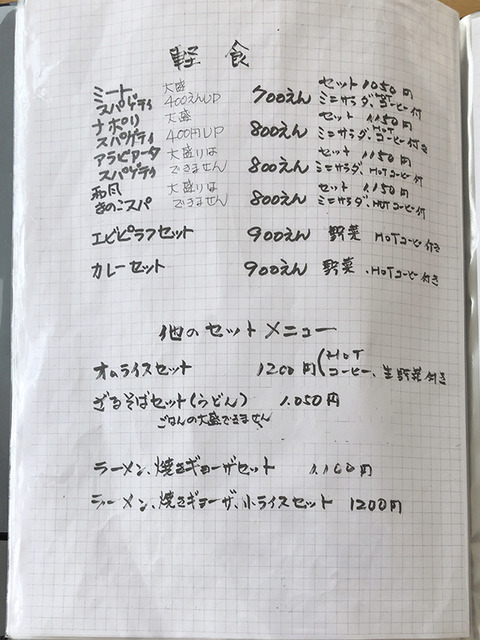 軽食
ミート 大盛 セット 1050円
スパゲティ 400えんUP 700えん ミニサラダ、HOTコーヒー付
ナポリ 大盛 セット 1150円
スパゲティ 400円UP 800えん ミニサラダ、HOTコーヒー付き
アラビアータ 大盛りは セット 1150円
スパゲティ できません 800えん ミニサラダ、HOTコーヒー付
和風 大盛りは セット 1150円
きのこスパ できません 800えん ミニサラダ、HOTコーヒー付
エビピラフセット 900えん 野菜 HOTコーヒー付き
カレーセット 900えん 野菜、HOTコーヒー付き
他のセットメニュー
オムライスセット 1200円(HOTコーヒー、生野菜付き
ざるそばセット(うどん) 1.050円
ごはんの大盛できません
ラーメン、焼きギョーザセット 1,100円
ラーメン、焼きギョーザ、小ライスセット 1200円